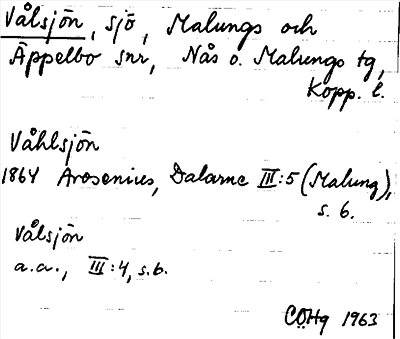 Vålsjön, sjö, Malungs och
Äppelbo snr, Nås o. Malungs tg,
Kopp. l.
Våhlsjön
1864 Arosenius, Dalarne III:5 (Malung),
s. 6.
Vålsjön
a.a., III:4, s.6.
CÖHg 1963